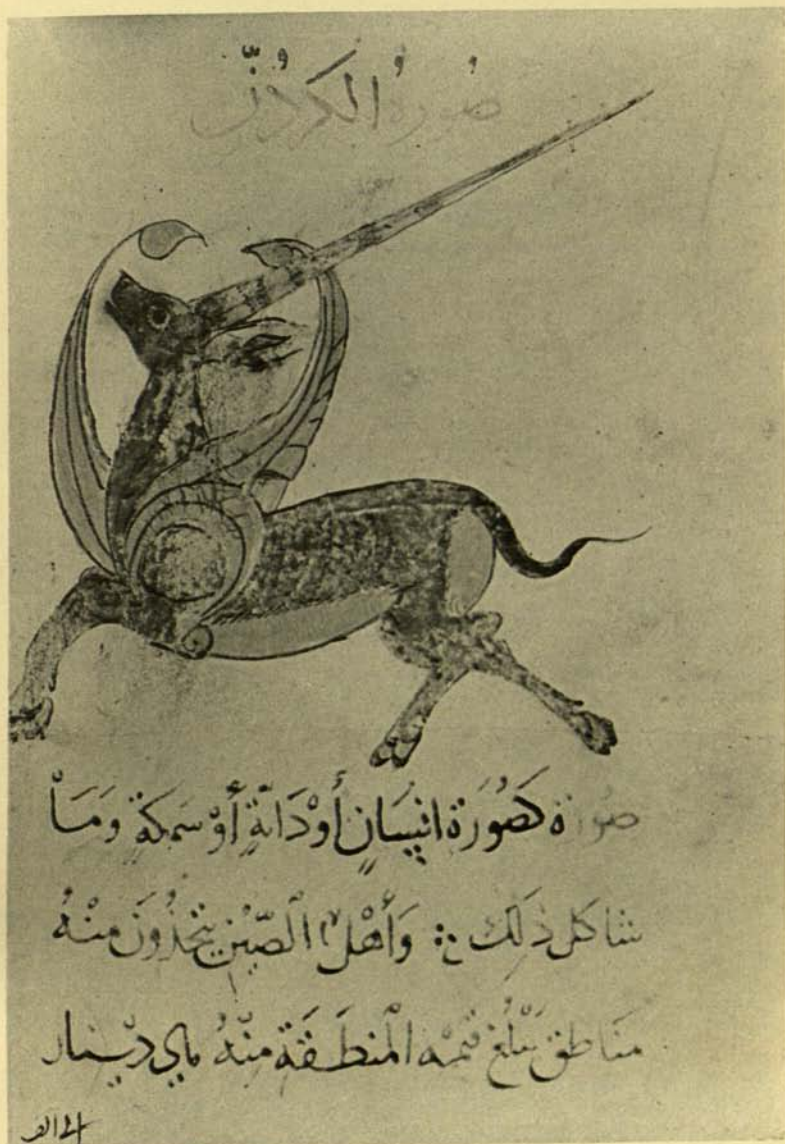 صُورَةُ الكَرْكَدَنِّ
صُورَة كَصُورَة انْسَانٍ أَوْ دَابَّةٍ أَوْ سَمَكةٍ وَمَا
شاكل ذلك ؞ وَأَهْلُ الصِّينِ يَتّخِذُونَ مِنْهُ
مَنَاطِقَ يَبْلُغ قيمة المنْطَقَة مِنْهُ مايى دينار
الى الف